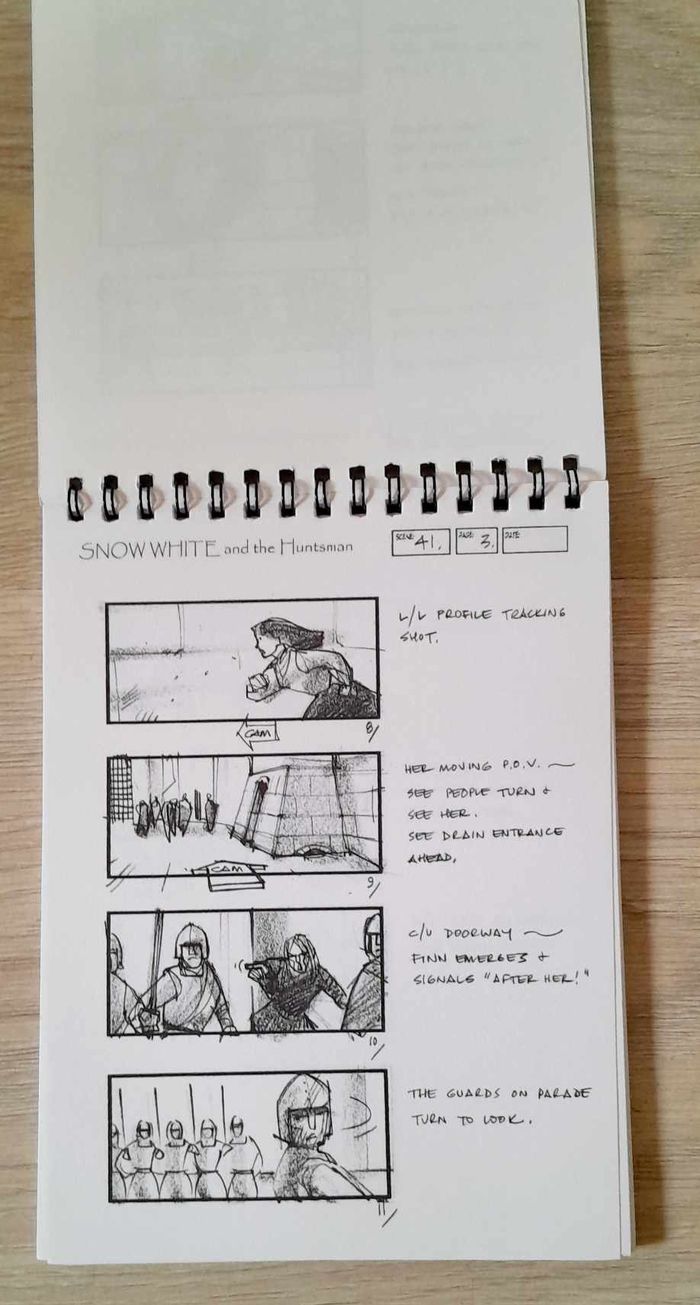 SNOW WHITE and the Huntsman
SCENE: 41.
PAGE: 3.
DATE:
L/L PROFILE TRACKING
SHOT.
CAM
8/
HER MOVING P.O.V. —
SEE PEOPLE TURN &
SEE HER.
SEE DRAIN ENTRANCE
AHEAD.
CAM
9/
C/U DOORWAY —
FINN EMERGES &
SIGNALS "AFTER HER!"
10/
THE GUARDS ON PARADE
TURN TO LOOK.
11/